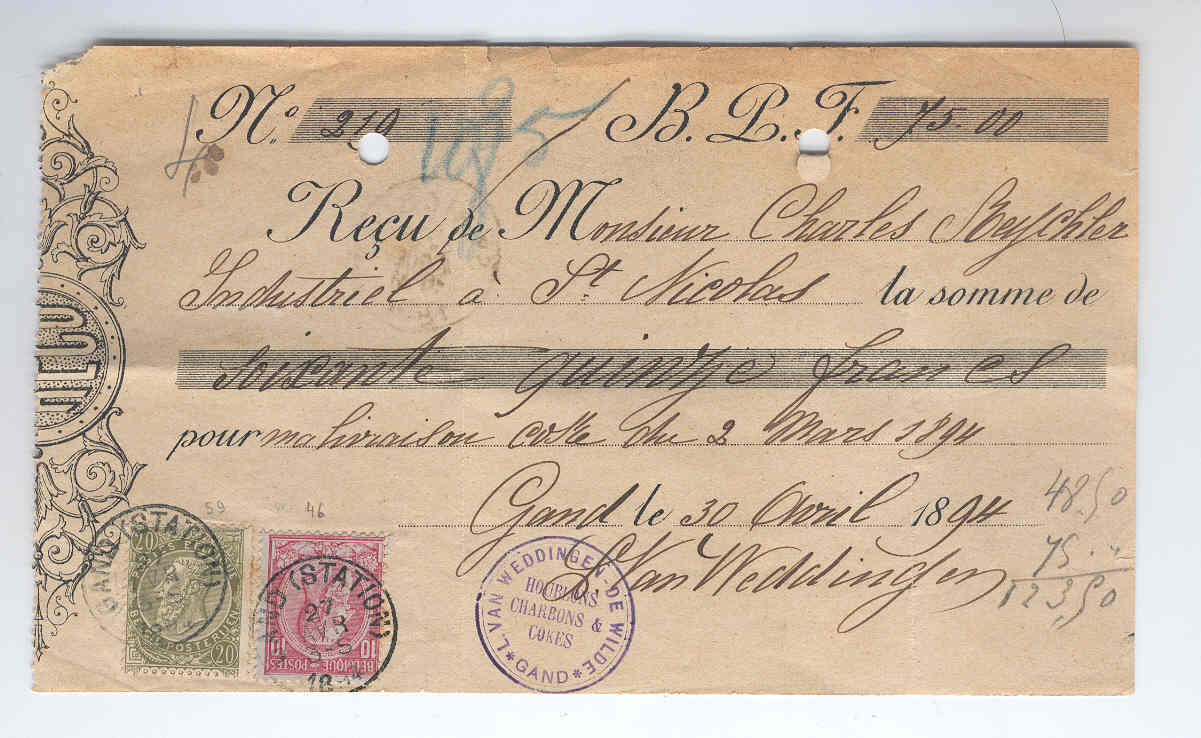 Nº 219 B. P. F. 75.00
1
Reçu de Monsieur Charles
Industriel à St. Nicolas la somme de
soixante quinze francs
pour ma livraison coke du 2 Mars 1894
Gand le 30 Avril 1894
L Van Weddingen
48.50
75 "
123,50
59
46
GAND (STATION)
20
BELGIQUE-POSTERIJEN
20
GAND (STATION)
27
AVR
3-S
10 BELGIQUE-POSTES 10
L. VAN WEDDINGEN-DE WILDE
HOUBLONS
CHARBONS &
COKES
*GAND*